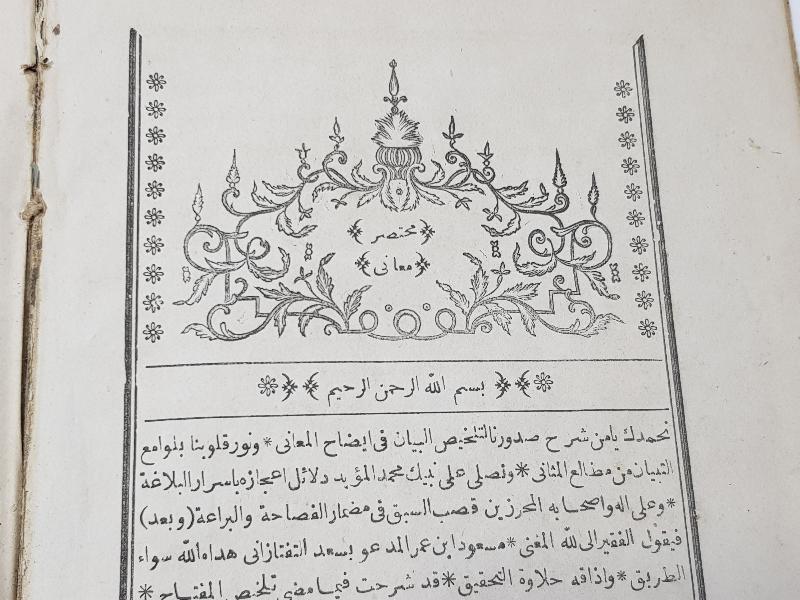 مختصر
معانى
بسم الله الرحمن الرحيم
نحمدك يا من شرح صدورنا لتلخيص البيان فى ايضاح المعانى * ونور قلوبنا بلوامع
التبيان من مطالع المثانى * ونصلى على نبيك محمد المؤيد دلائل اعجازه باسرار البلاغة
* وعلى اله واصحابه المحرزين قصب السبق فى مضمار الفصاحة والبراعة (وبعد)
فيقول الفقير الى لله الغنى * مسعود ابن عمر المدعو بسعد التفتازانى هداه الله سواء
الطريق * واذاقه حلاوة التحقيق * قد شرحت فيما مضى تلخيص المفتاح *